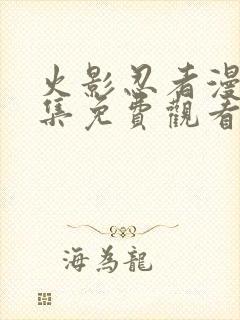 火影忍者漫
集免費觀看
海為龍